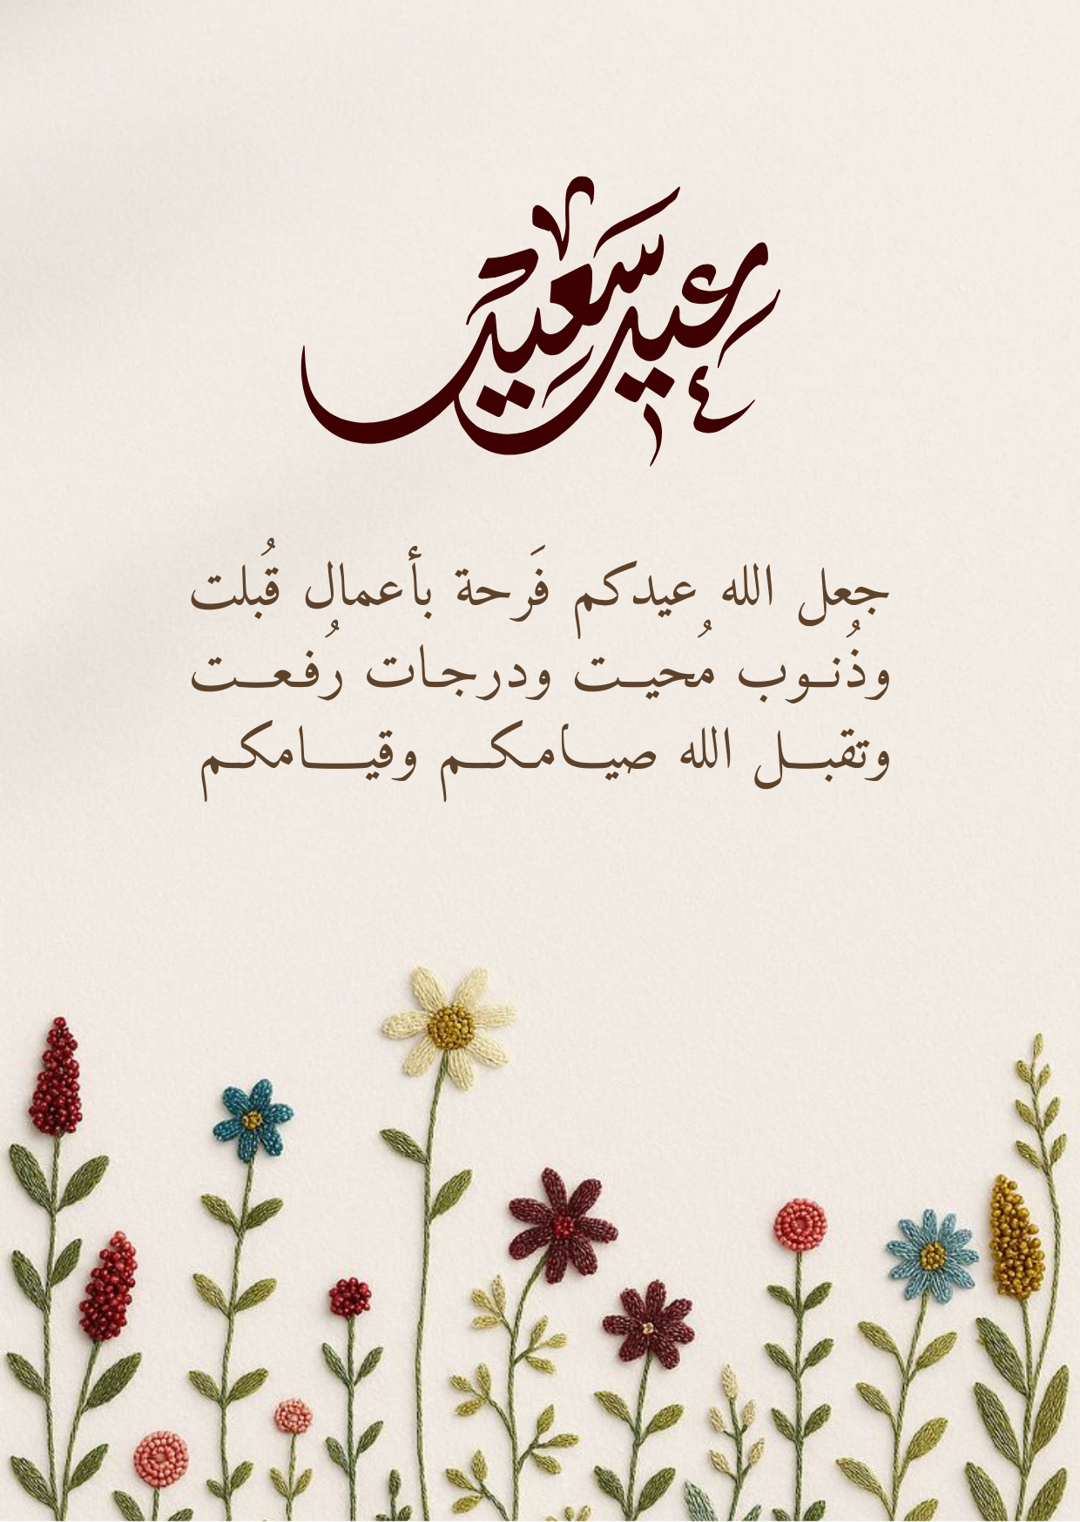 عيد سعيد
جعل الله عيدكم فَرحة بأعمال قُبلت
وذُنـوب مُحيـت ودرجات رُفعـت
وتقبـل الله صيـامكـم وقيـــامكـم